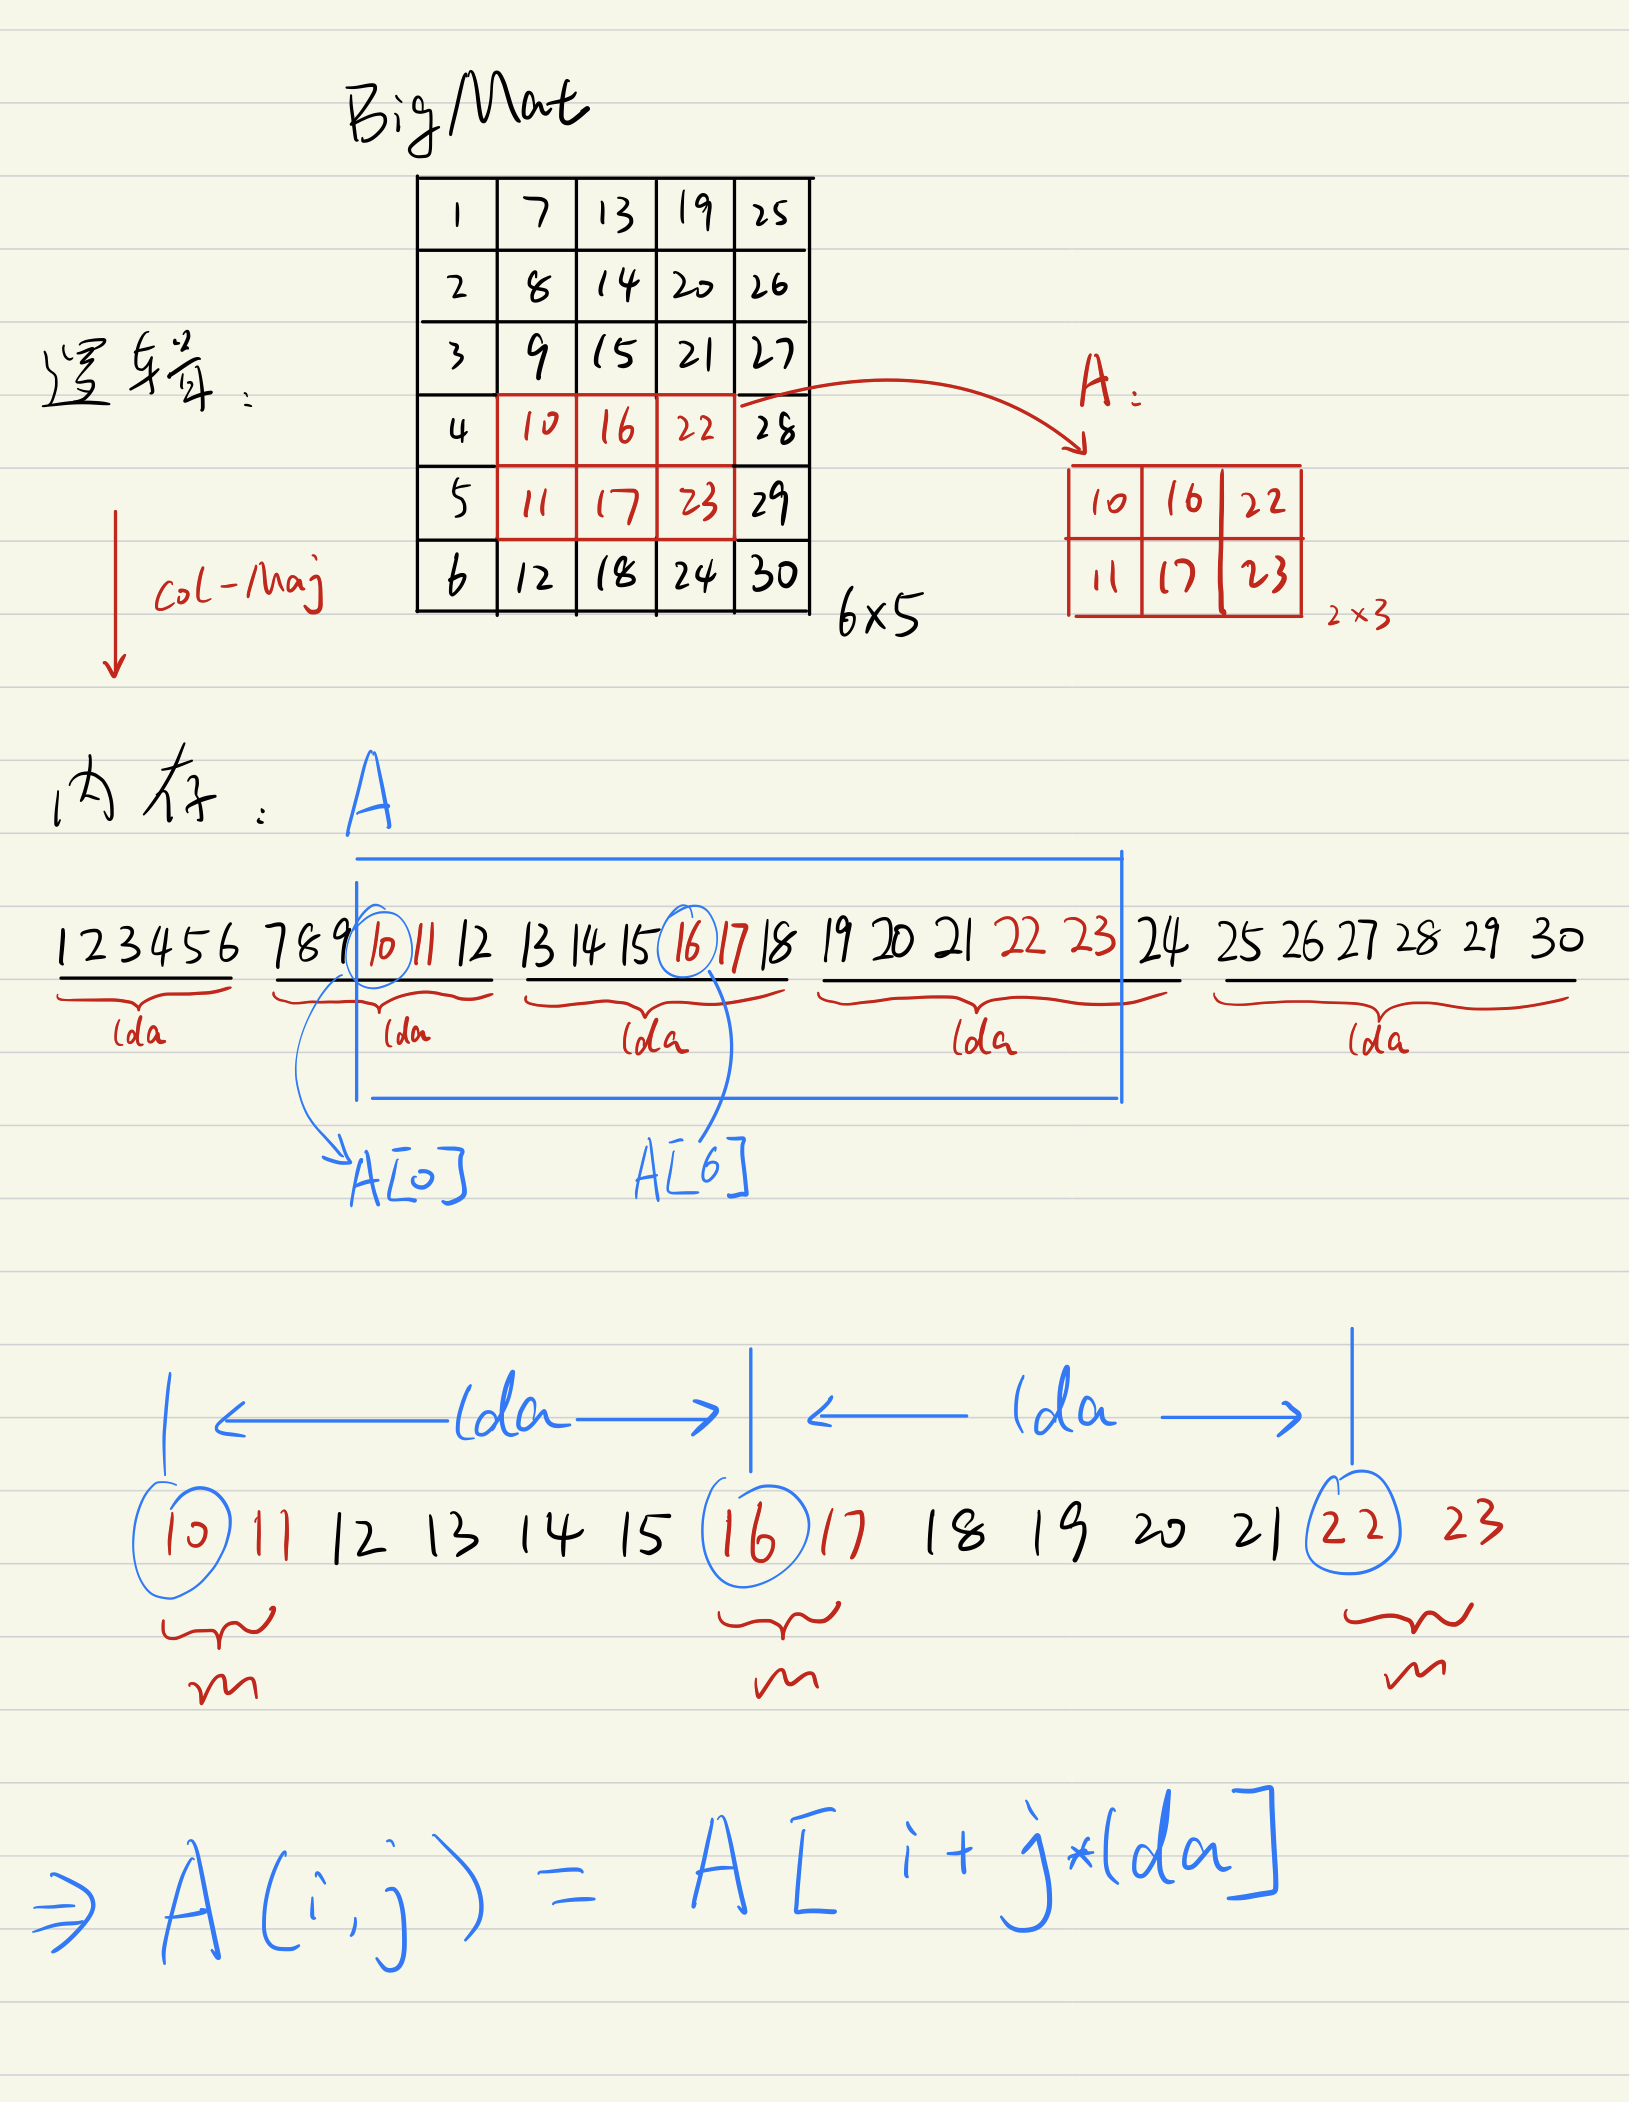 BigMat
1 7 13 19 25
2 8 14 20 26
逻辑:
3 9 15 21 27
A:
4 10 16 22 28
5 11 17 23 29
10 16 22
col-Maj
6 12 18 24 30
11 17 23
6×5
2×3
内存: A
1 2 3 4 5 6 7 8 9 10 11 12 13 14 15 16 17 18 19 20 21 22 23 24 25 26 27 28 29 30
lda lda lda lda lda
A[0] A[6]
lda lda
10 11 12 13 14 15 16 17 18 19 20 21 22 23
m m m
⇒ A(i,j) = A[i+j*lda]